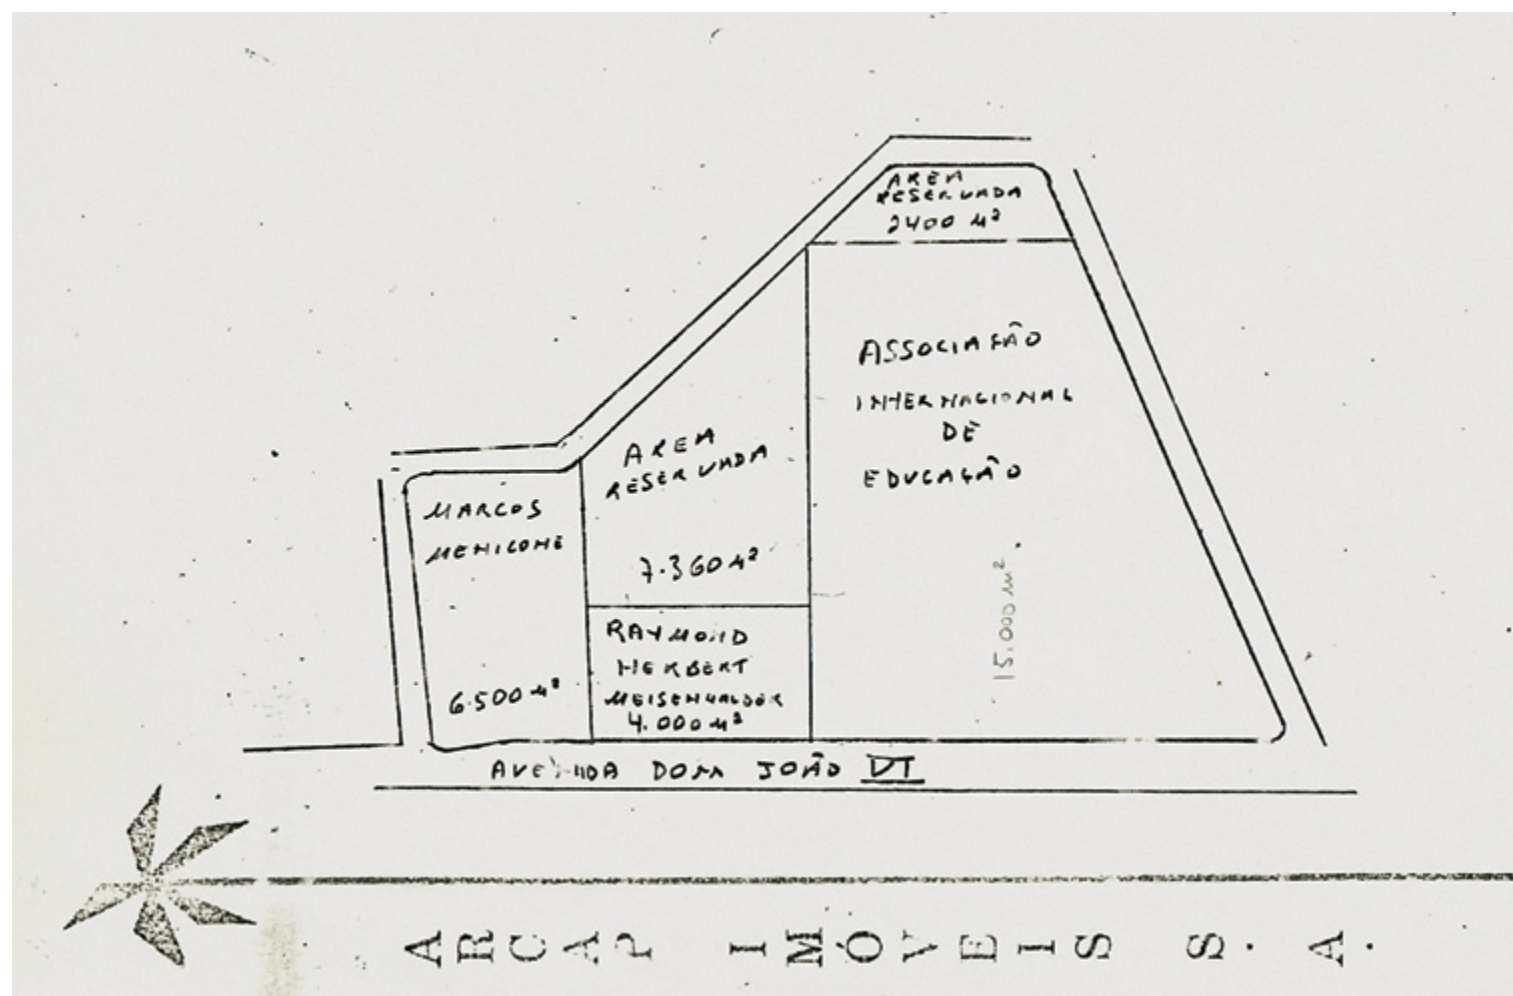 AREA
RESERVADA
2400 M²
ASSOCIAÇÃO
INTERNACIONAL
DE
EDUCAÇÃO
15.000 m²
AREA
RESERVADA
7.360 M²
MARCOS
MENICONE
6.500 M²
RAYMOND
HERBERT
4.000 M²
AVENIDA DOM JOÃO VI
ARCAP IMÓVEIS S.A.